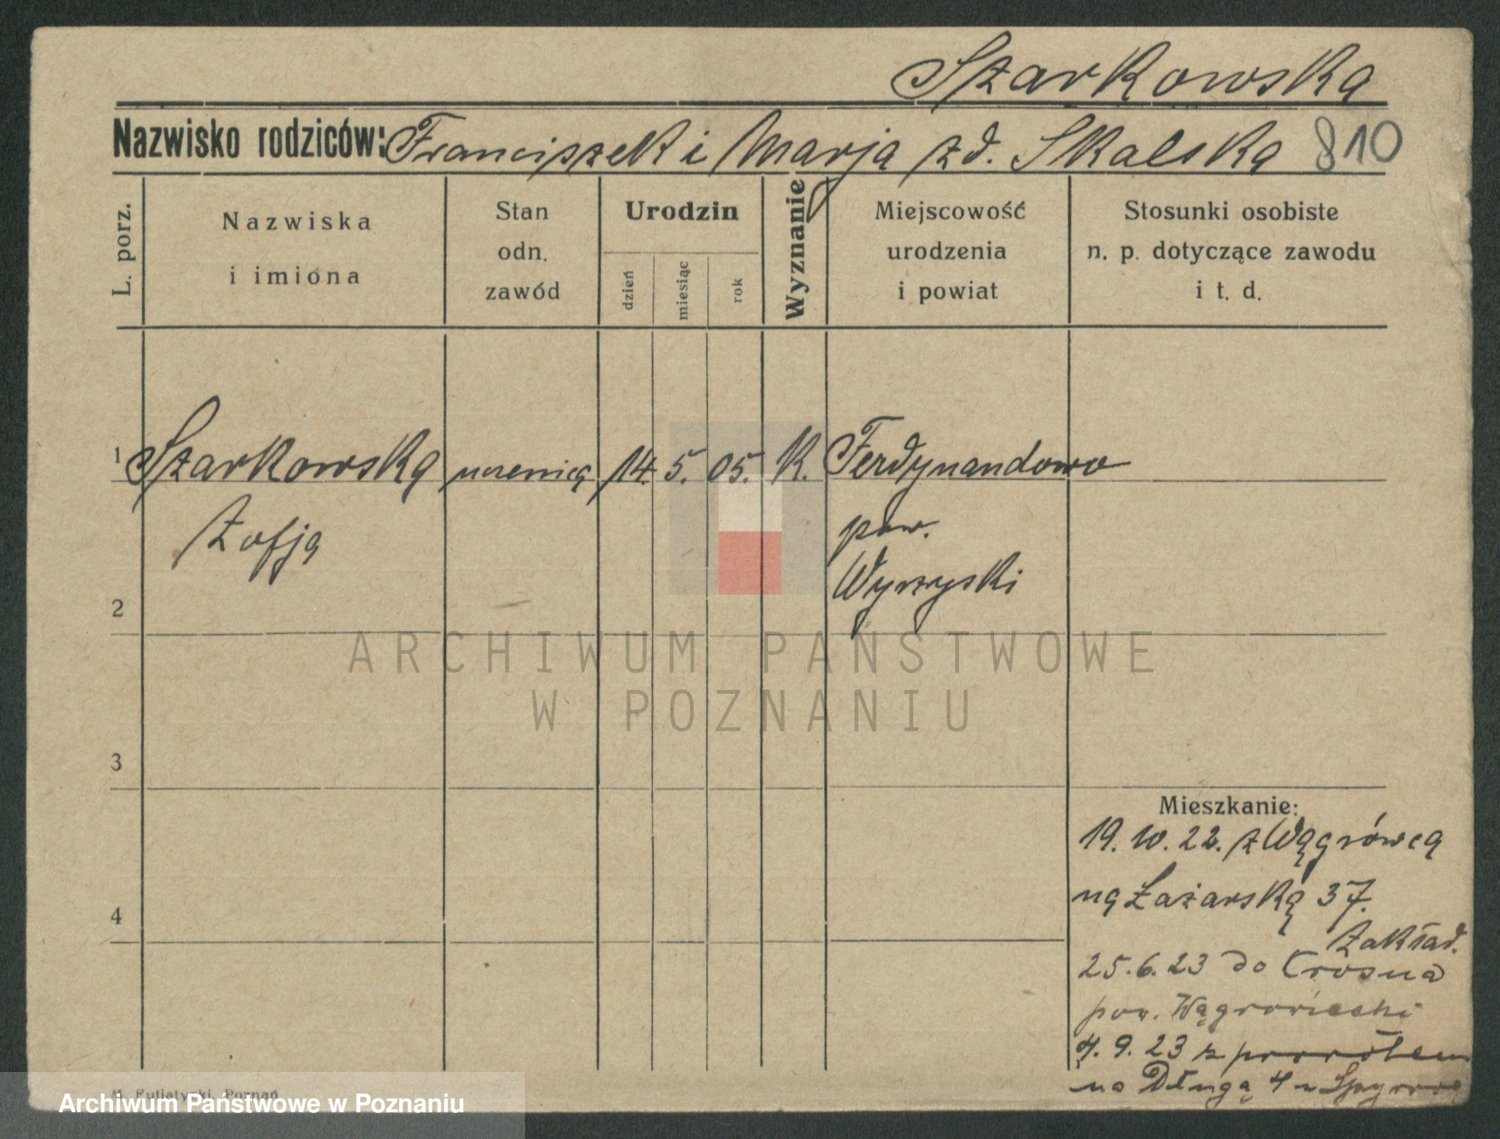 Szarkowska
Nazwisko rodziców: Franciszek i Marja zd. Skalska 810
L. porz.
Nazwiska
i imiona
Stan
odn.
zawód
Urodzin
dzień
miesiąc
rok
Wyznanie
Miejscowość
urodzenia
i powiat
Stosunki osobiste
n. p. dotyczące zawodu
i t. d.
1 Szarkowska uczenica 14. 5. 05. K. Ferdynandowo
Zofja pow.
Wyrzyski
2
3
4
Mieszkanie:
19. 10. 22. z Wągrówca
na Łazarską 37.
Zakład.
25. 6. 23 do
pow. Wągrowiecki
4. 9. 23 z powrotem
na Długą 4 u
Poznań
ARCHIWUM PAŃSTWOWE
W POZNANIU
Archiwum Państwowe w Poznaniu